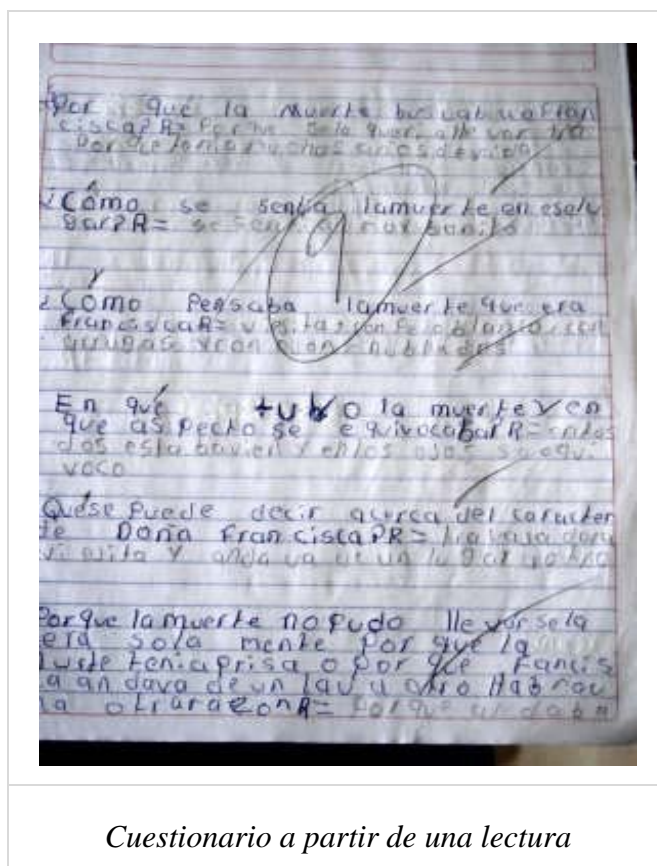 Por qué la muerte buscaba a Fran
cisca? R= Porque se la queria llevar
Porque tenia muchos años de vida
¿Cómo se sentia lamuerte en eselu
gar? R= se sentia muy bonito
9
¿Cómo Pensaba lamuerte que era
Francisca R= viejita con Pelo blanco con
arrugas y con
En qué tubo la muerte y en
que aspecto se equivocaba? R= en
dos estaba vien y en los ojos se equi
voco
Quése Puede decir acerca del caracter
de Doña Francisca? R= trabajadora
viejita y andava de un lugar
Porque lamuerte no Pudo lle varsela
era sola mente Por que la
tenia prisa o por que Fancis
ca an dava de un lau a otro Habrau
na otra razon R= Porque
Cuestionario a partir de una lectura